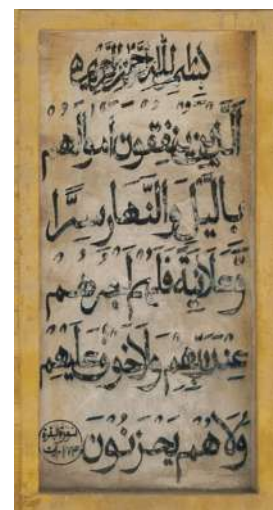 بسم الله الرحمن الرحيم
الذين ينفقون أموالهم
باليل والنهار سرا
وعلانية فلهم أجرهم
عند ربهم ولا خوف عليهم
ولا هم يحزنون
سورة البقرة